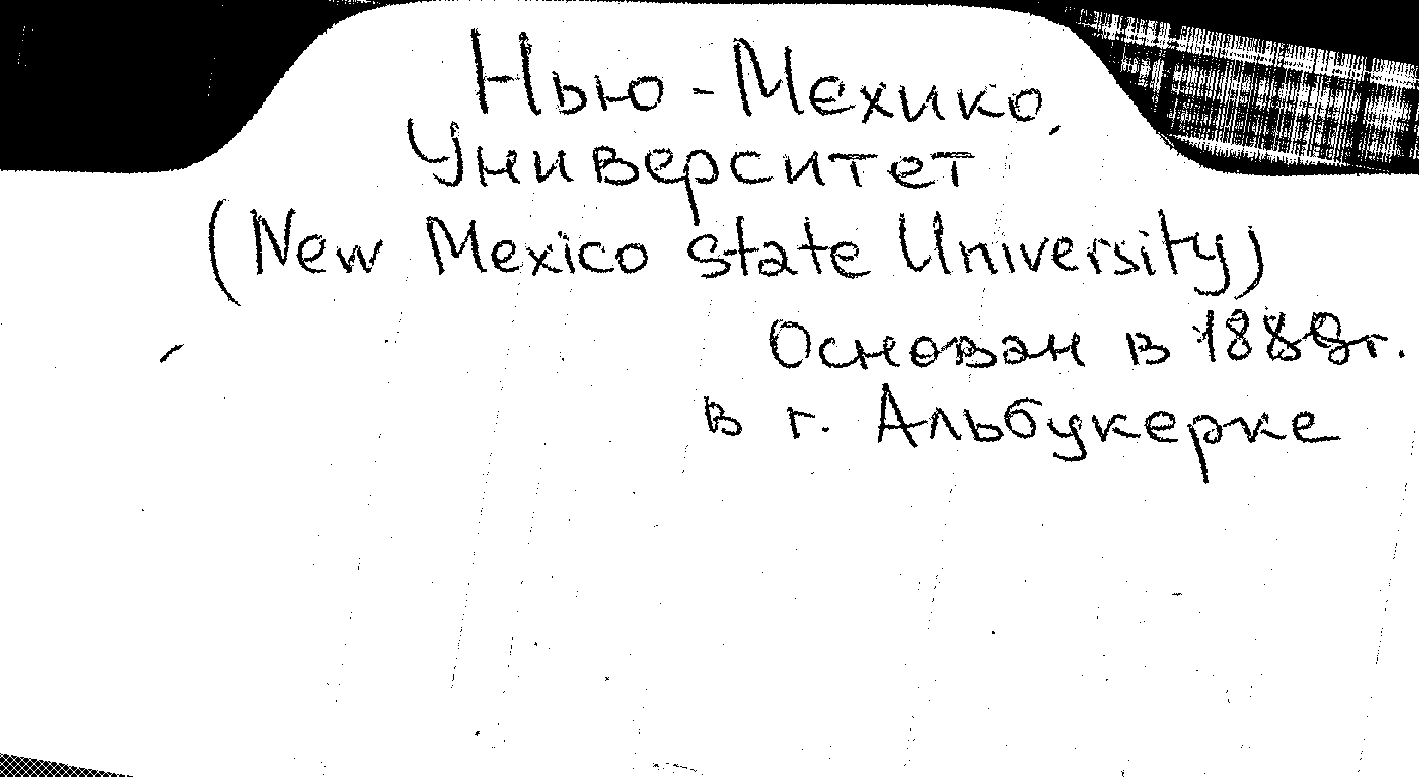 Нью-Мехико,
Университет
(New Mexico State University)
Основан в 1889г.
в г. Альбукерке